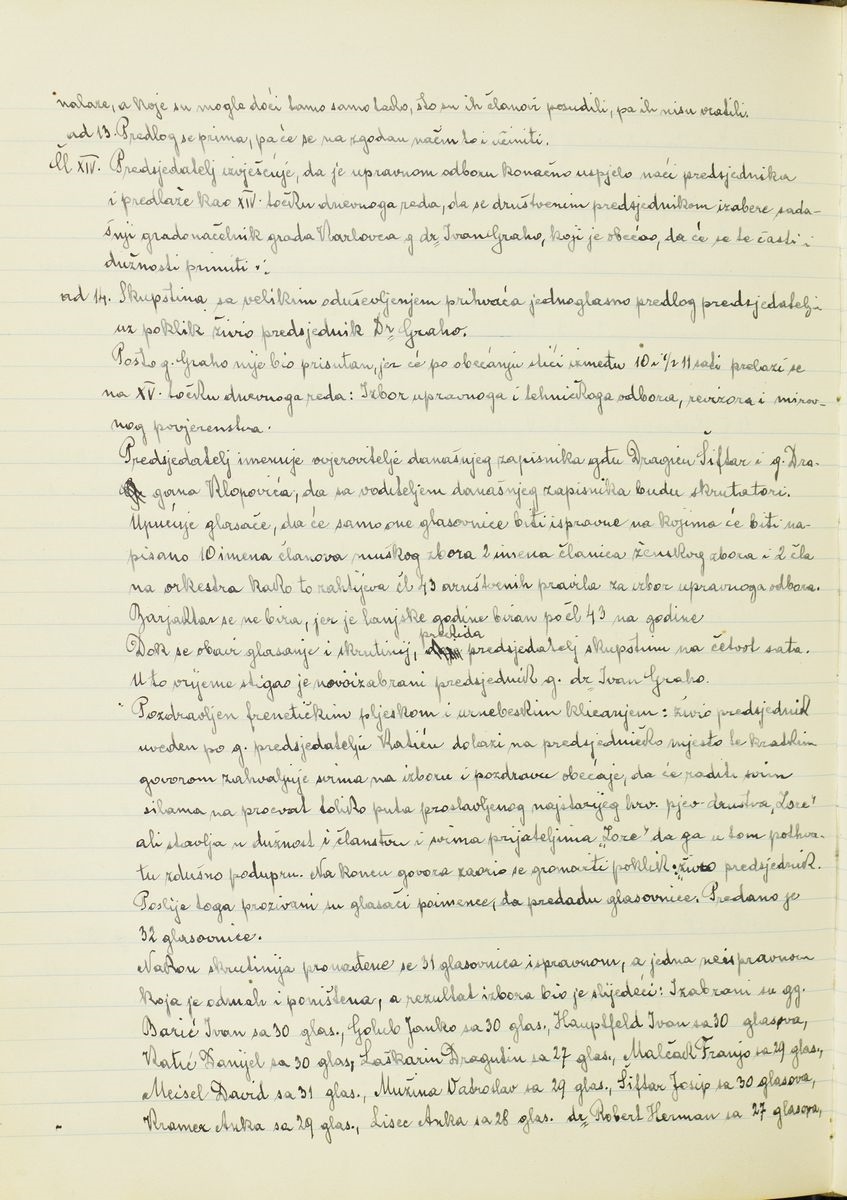 nalaze, a koje su mogle doći tamo samo tako, što su ih članovi posudili, pa ih nisu vratili.
ad 13. Predlog se prima, pa će se na zgodan način to i učiniti.
Čl XIV. Predsjedatelj izvješćuje, da je upravnom odboru konačno uspjelo naći predsjednika
i predlaže kao XIV. točku dnevnoga reda, da se društvenim predsjednikom izabere sada-
šnji gradonačelnik grada Karlovca g dr. Ivan Graho, koji je obećao, da će se te časti i
dužnosti primiti.
ad 14. Skupština sa velikim oduševljenjem prihvaća jednoglasno predlog predsjedatelja
uz poklik živio predsjednik Dr. Graho.
Pošto g. Graho nije bio prisutan, jer će po obećanju stići između 10 i ½ 11 sati prelazi se
na XV. točku dnevnoga reda: Izbor upravnoga i tehničkoga odbora, revizora i mirov-
nog povjerenstva.
Predsjedatelj imenuje ovjerovitelje današnjeg zapisnika gđu Dragicu Šiftar i g. Dra-
gana Klopovića, da sa voditeljem današnjeg zapisnika budu skrutatori.
Upućuje glasače, da će samo one glasovnice biti ispravne na kojima će biti na-
pisano 10 imena članova muškog zbora 2 imena članica ženskog zbora i 2 čla
na orkestra kako to zahtijeva čl 43 društvenih pravila za izbor upravnoga odbora.
Barjaktar se ne bira, jer je lanjske godine biran po čl 43 na godine
Dok se obavi glasanje i skrutinij, prekida predsjedatelj skupštinu na četvrt sata.
U to vrijeme stigao je novoizabrani predsjednik g. dr. Ivan Graho.
Pozdravljen frenetičkim pljeskom i urnebeskim klicanjem: živio predsjednik
uveden po g. predsjedatelju Katiću dolazi na predsjedničko mjesto te kratkim
govorom zahvaljuje svima na izboru i pozdravu obećaje, da će raditi svim
silama na procvat toliko puta proslavljenog najstarijeg hrv. pjev. društva „Zore"
ali stavlja u dužnost i članstvu i svima prijateljima „Zore" da ga u tom pothva-
tu zdušno podupru. Na koncu govora zaorio se gromoviti poklik: „živio predsjednik.
Poslije toga prozivani su glasači poimence, da predadu glasovnice. Predano je
32 glasovnice.
Nakon skrutinija pronađene se 31 glasovnica ispravnom, a jedna neispravnom
koja je odmah i poništena, a rezultat izbora bio je slijedeći: Izabrani su gg.
Barić Ivan sa 30 glas., Golub Janko sa 30 glas., Hauptfeld Ivan sa 30 glasova,
Katić Danijel sa 30 glas., Laškarin Dragutin sa 27 glas., Malčak Franjo sa 29 glas.,
Meisel David sa 31 glas., Mužina Vatroslav sa 29 glas., Šiftar Josip sa 30 glasova,
Kramer Anka sa 29 glas., Lisec Anka sa 28 glas. dr. Robert Herman sa 27 glasova,